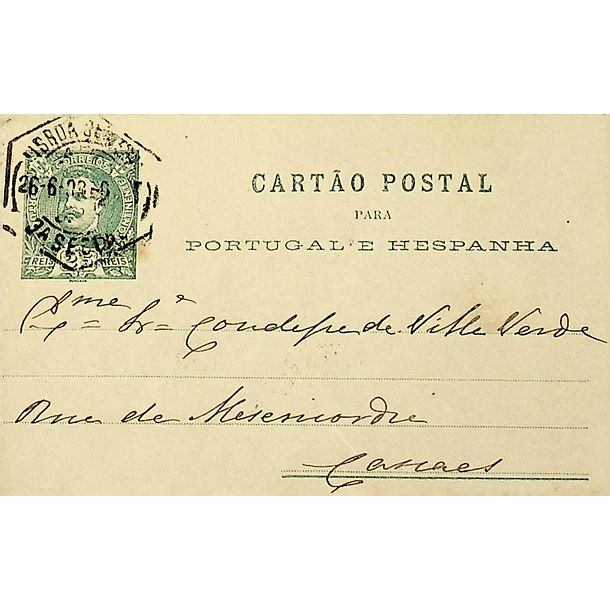 LISBOA CENTRAL
26-6
3A SECÇÃO
CORREIOS
REIS REIS
CARTÃO POSTAL
PARA
PORTUGAL E HESPANHA
Exme Srª Condessa de Villa Verde
Rua da Misericordia
Cascaes